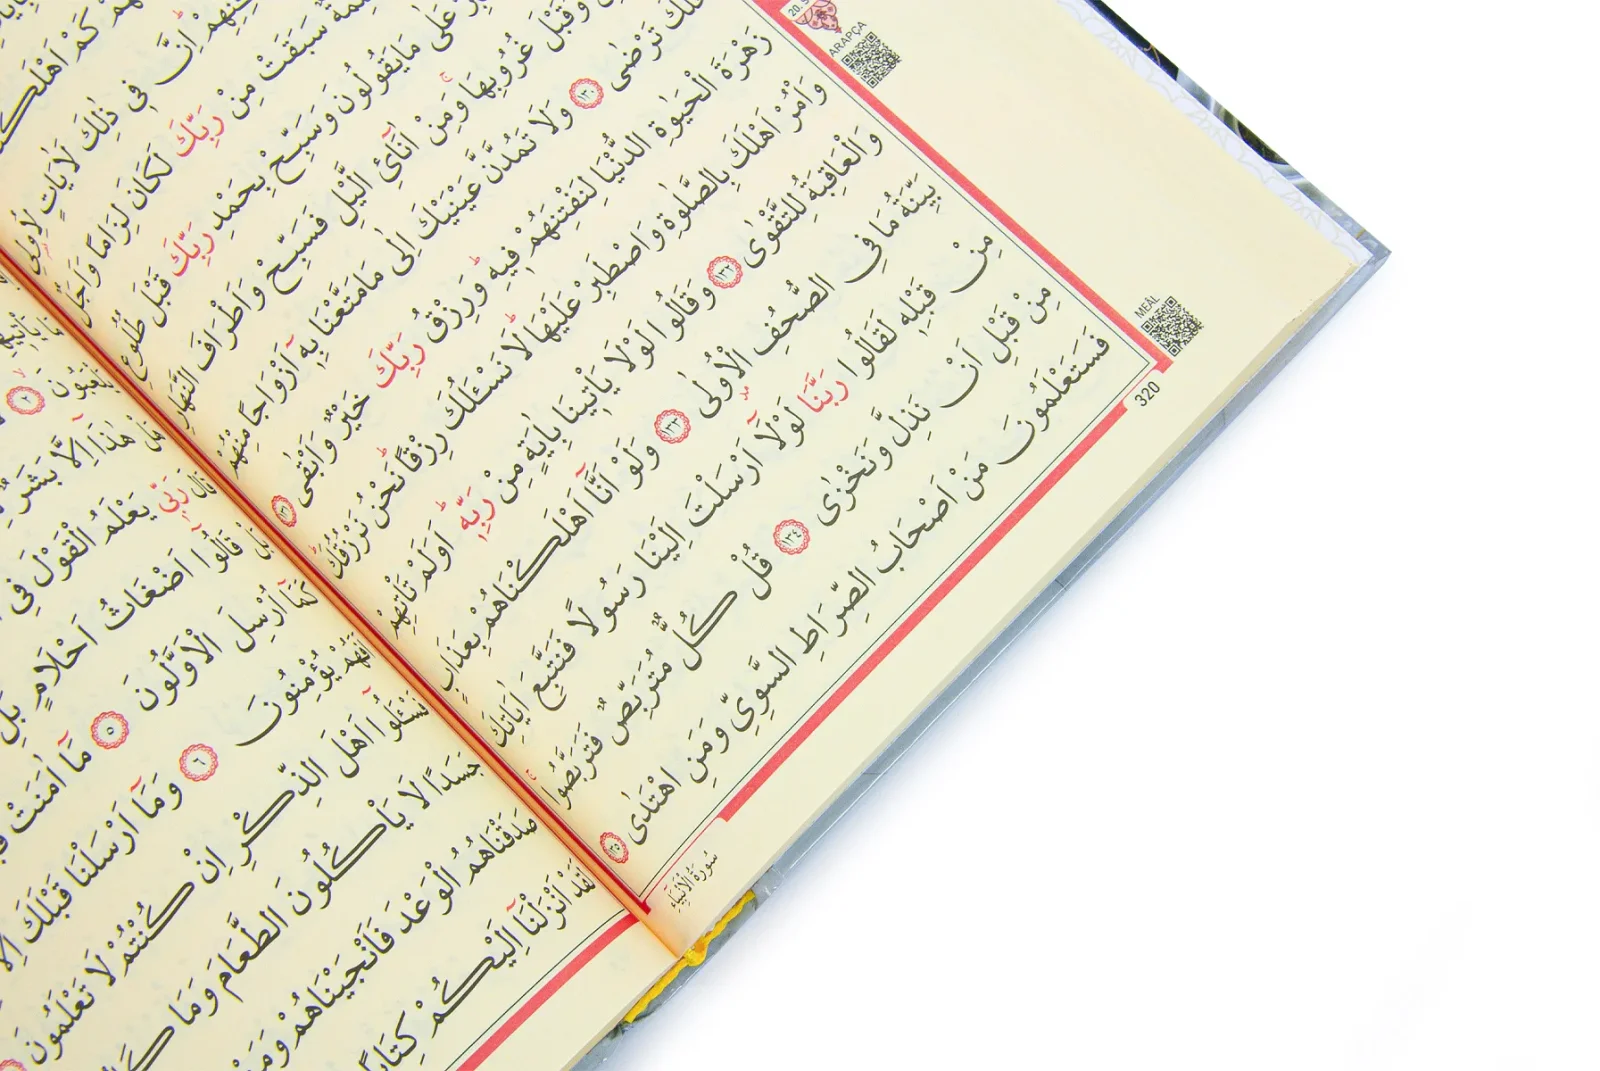 20. S
ARAPÇA
كَمْ اَهْلَكْ
اِنَّ فٖى ذٰلِكَ لَاٰيَاتٍ لِاُولِى
سَبَقَتْ مِنْ رَبِّكَ لَكَانَ لِزَامًا وَاَجَلٌ
عَلٰى مَايَقُولُونَ وَسَبِّحْ بِحَمْدِ رَبِّكَ قَبْلَ طُلُوعِ
وَقَبْلَ غُرُوبِهَا وَمِنْ اٰنَٓائِ الَّيْلِ فَسَبِّحْ وَاَطْرَافَ النَّهَارِ
تَرْضٰى ١٣٠ وَلَا تَمُدَّنَّ عَيْنَيْكَ اِلٰى مَامَتَّعْنَا بِهٖٓ اَزْوَاجًا مِنْهُمْ
زَهْرَةَ الْحَيٰوةِ الدُّنْيَا لِنَفْتِنَهُمْ فٖيهِ وَرِزْقُ رَبِّكَ خَيْرٌ وَاَبْقٰى ١٣١
وَاْمُرْ اَهْلَكَ بِالصَّلٰوةِ وَاصْطَبِرْ عَلَيْهَا لَا نَسْـَٔلُكَ رِزْقًا نَحْنُ نَرْزُقُكَ
وَالْعَاقِبَةُ لِلتَّقْوٰى ١٣٢ وَقَالُوا لَوْلَا يَاْتٖينَا بِاٰيَةٍ مِنْ رَبِّهٖ اَوَلَمْ تَاْتِهِمْ
بَيِّنَةُ مَا فِى الصُّحُفِ الْاُولٰى ١٣٣ وَلَوْ اَنَّٓا اَهْلَكْنَاهُمْ بِعَذَابٍ
مِنْ قَبْلِهٖ لَقَالُوا رَبَّنَا لَوْلَٓا اَرْسَلْتَ اِلَيْنَا رَسُولًا فَنَتَّبِعَ اٰيَاتِكَ
مِنْ قَبْلِ اَنْ نَذِلَّ وَنَخْزٰى ١٣٤ قُلْ كُلٌّ مُتَرَبِّصٌ فَتَرَبَّصُوا
فَسَتَعْلَمُونَ مَنْ اَصْحَابُ الصِّرَاطِ السَّوِىِّ وَمَنِ اهْتَدٰى ١٣٥
MEÂL
320
سُورَةُ الْاَنْبِيَاءِ
يَلْعَبُونَ ٢
هٰذَٓا اِلَّا بَشَرٌ
قَالَ رَبّٖى يَعْلَمُ الْقَوْلَ فِى
بَلْ قَالُٓوا اَضْغَاثُ اَحْلَامٍ بَلِ
كَمَٓا اُرْسِلَ الْاَوَّلُونَ ٥ مَٓا اٰمَنَتْ
اَفَهُمْ يُؤْمِنُونَ ٦ وَمَٓا اَرْسَلْنَا قَبْلَكَ
فَسْـَٔلُٓوا اَهْلَ الذِّكْرِ اِنْ كُنْتُمْ لَا تَعْلَمُونَ
جَسَدًا لَا يَاْكُلُونَ الطَّعَامَ وَمَا
صَدَقْنَاهُمُ الْوَعْدَ فَاَنْجَيْنَاهُمْ وَمَنْ
لَقَدْ اَنْزَلْنَٓا اِلَيْكُمْ كِتَابًا